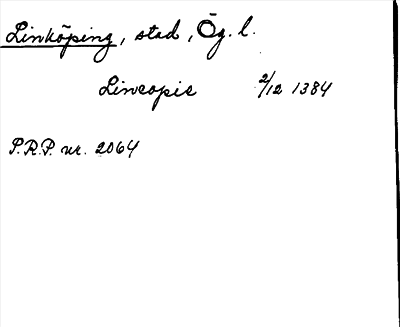 Linköping, stad, Ög. l.
Lincopie 2/12 1384
P.R.P. nr. 2064